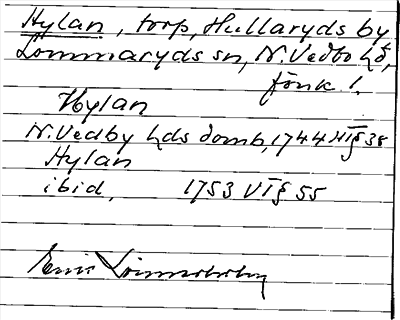 Hylan, torp, Hullaryds by
Lommaryds sn, N. Vedbo hd,
Jönk l.
Hylan
N. Vedby hds domb, 1744 HT § 38
Hylan
ibid, 1753 VT § 55